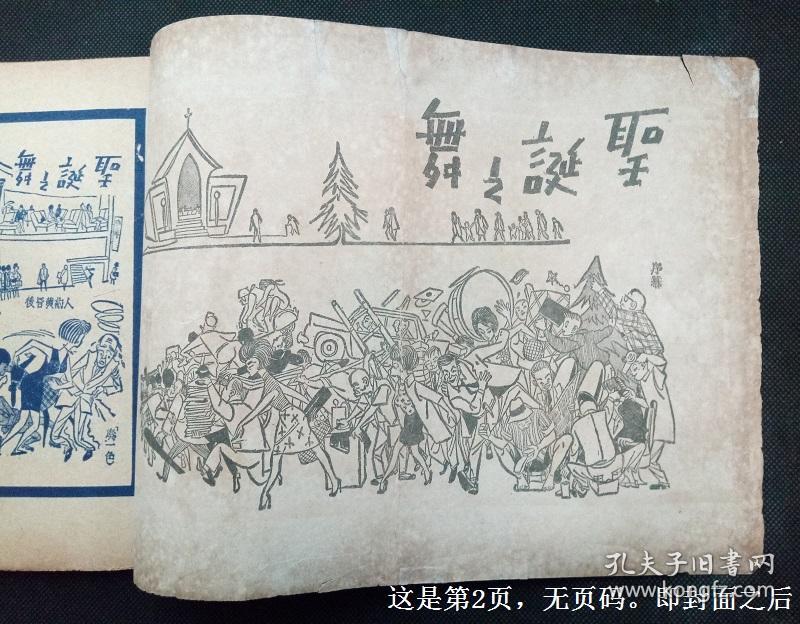 聖誕之舞
序幕
聖誕之舞
人約黃昏後
孔夫子旧书网
www.kongfz.com
这是第2页，无页码。即封面之后